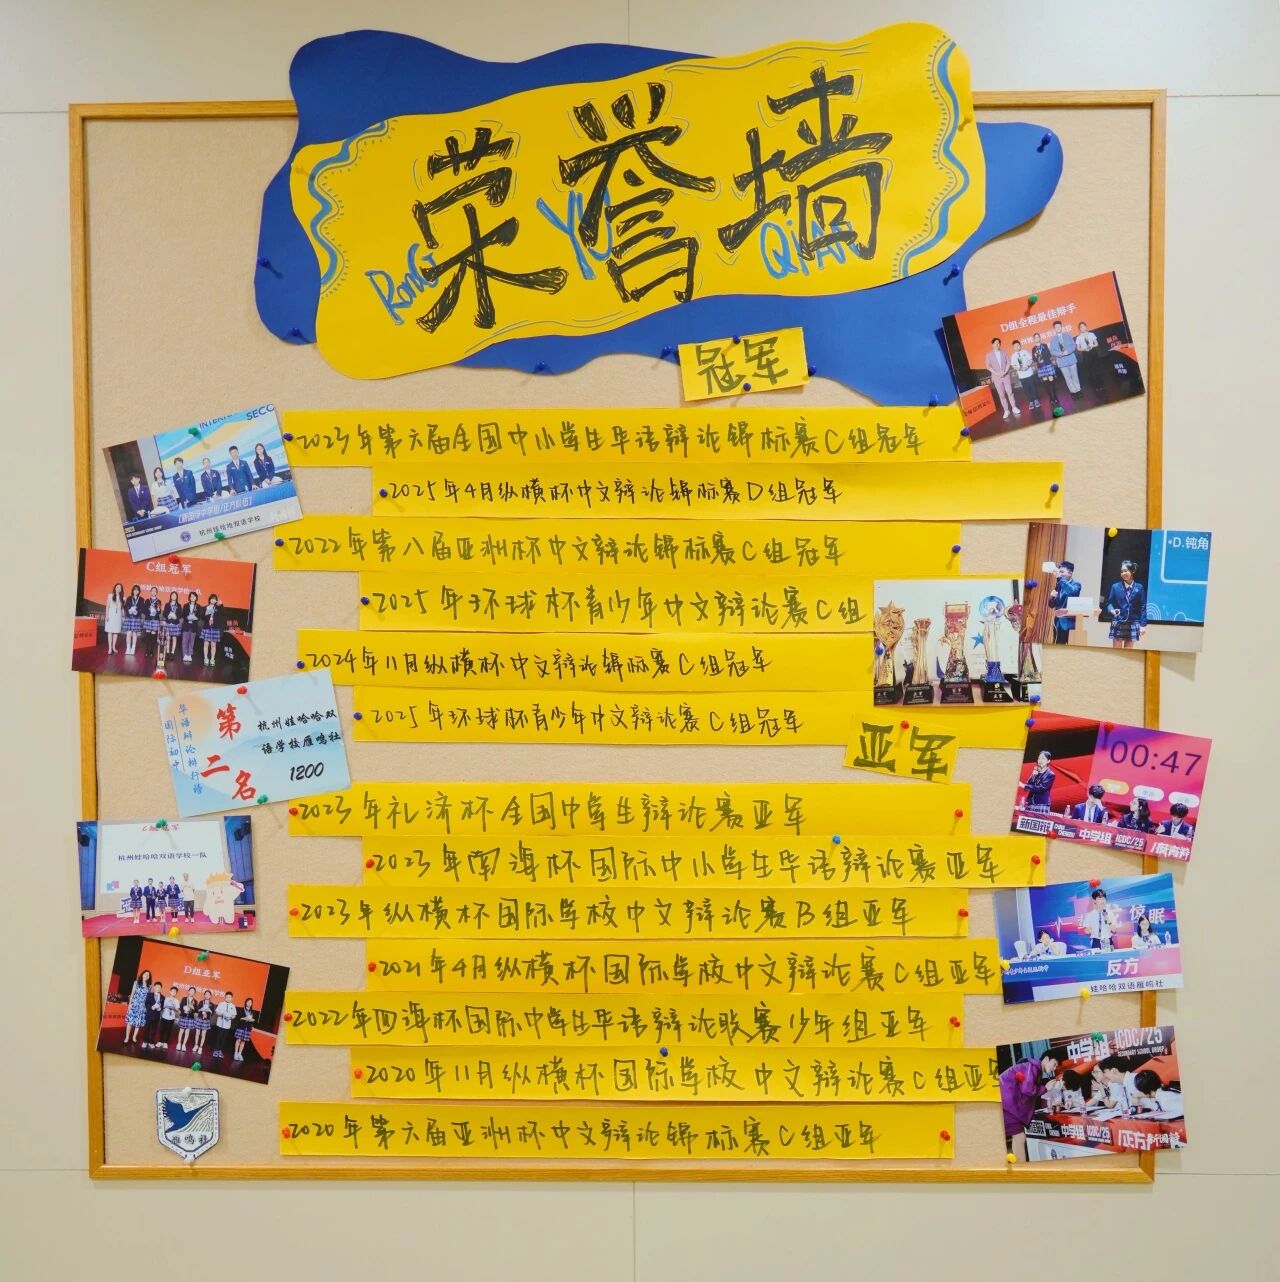 荣誉墙
RONG YU QIAN
冠军
2023年第六届全国中小学生华语辩论锦标赛C组冠军
2025年4月纵横杯中文辩论锦标赛D组冠军
2022年第八届亚洲杯中文辩论锦标赛C组冠军
2025年环球杯青少年中文辩论赛C组
2024年11月纵横杯中文辩论锦标赛C组冠军
2025年环球杯青少年中文辩论赛C组冠军
亚军
2023年礼济杯全国中学生辩论赛亚军
2023年南海杯国际中小学生华语辩论赛亚军
2023年纵横杯国际学校中文辩论赛B组亚军
2021年4月纵横杯国际学校中文辩论赛C组亚军
2022年四海杯国际中学生华语辩论联赛少年组亚军
2020年11月纵横杯国际学校中文辩论赛C组亚军
2020年第六届亚洲杯中文辩论锦标赛C组亚军
SECC
杭州娃哈哈双语学校
C组冠军
华语辩论排行榜
国际初中
第二名
杭州娃哈哈双
语学校雁鸣社
1200
C组冠军
杭州娃哈哈双语学校一队
D组亚军
雁鸣社
D组全程最佳辩手
D.钝角
00:47
新国辩
中学组
ICDC/25
惊眠
反方
娃哈哈双语雁鸣社
中学组
ICDC/25
SECONDARY SCHOOL GROUP
中学组
ICDC/25
正方
新国辩